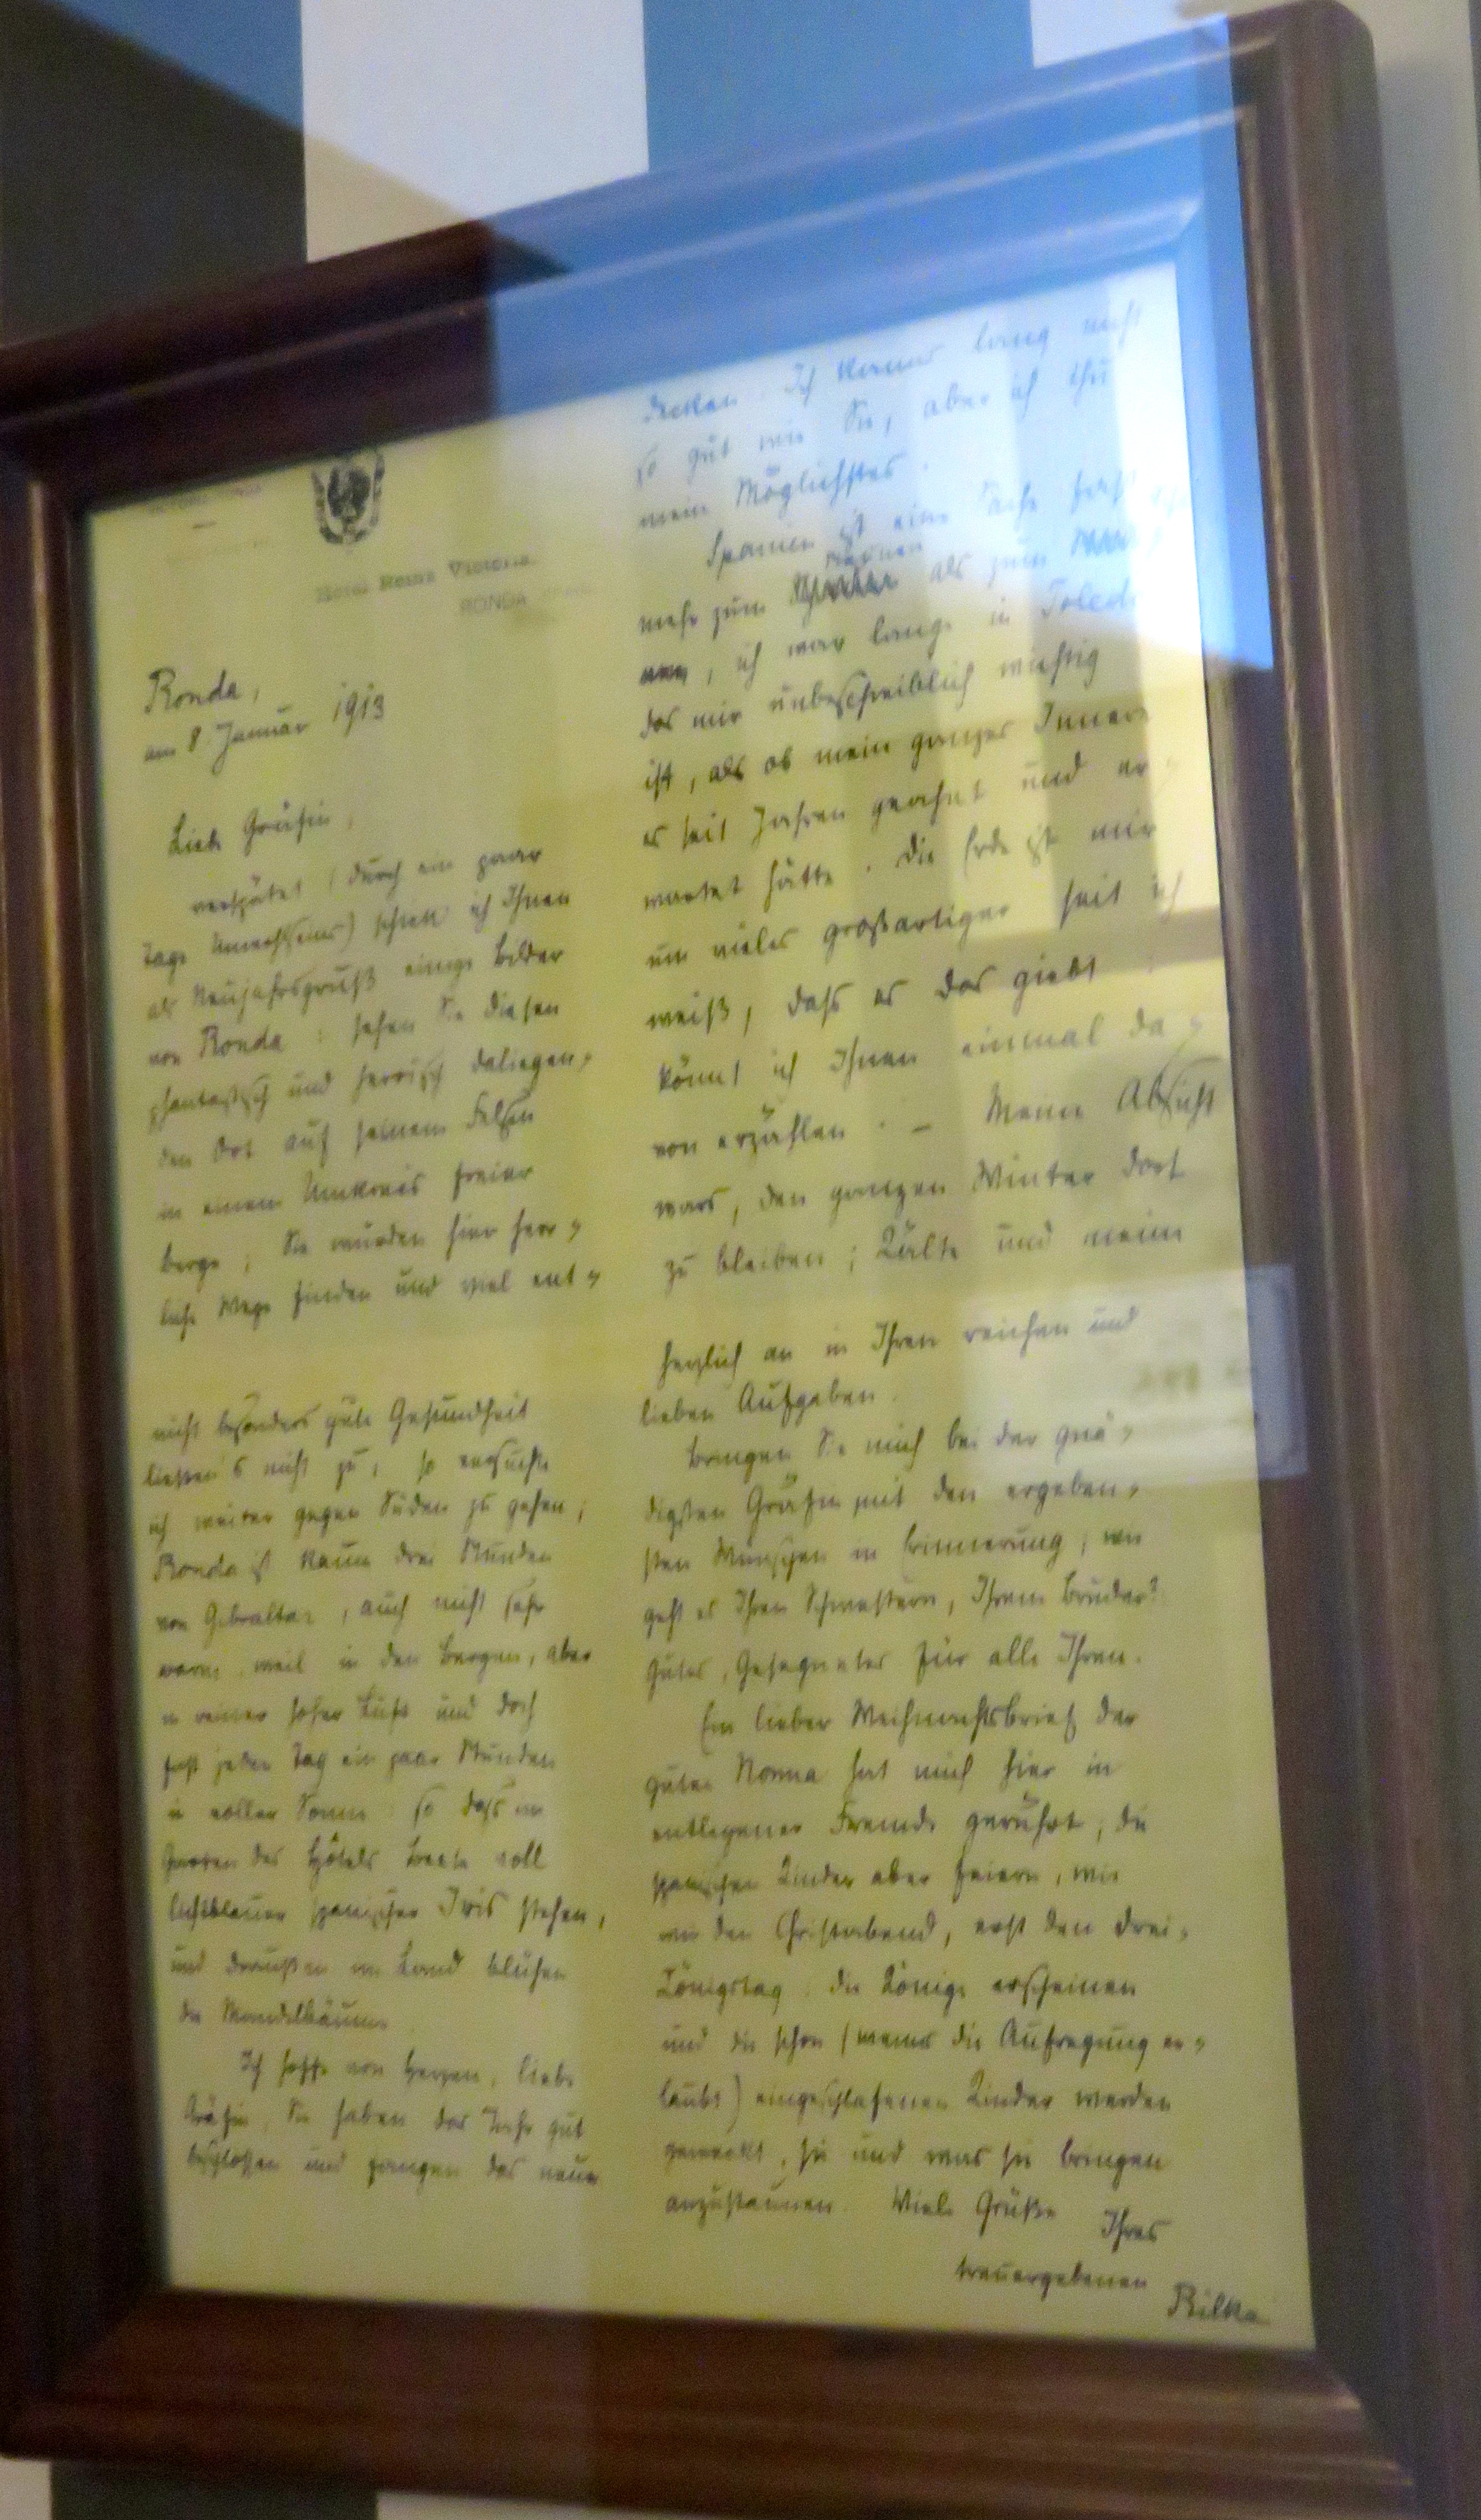 Hotel Reina Victoria
RONDA
Ronda,
am 8. Januar 1913
Liebe Gräfin,
verspätet (durch ein paar
Tage Unwohlseins) schick ich Ihnen
als Neujahrsgruß einige Bilder
von Ronda : sehen Sie diesen
phantastisch und heroisch daliegen-
den Ort auf seinem Felsen
in einem Umkreis freier
Berge ; Sie würden hier herr-
liche Wege finden und viel ent-
decken. Ich kanns lang nicht
so gut wie Sie, aber ich thu
mein Möglichstes.
Spanien ist eine Sache fast
mehr zum als zum
, ich war lange in Toledo
das mir unbeschreiblich wichtig
ist, als ob mein ganzes Innere
es seit Jahren geahnt und er-
wartet hätte. Die Erde ist mir
um vieles großartiger seit ich
weiß, dass es das giebt
könnt ich Ihnen einmal da-
von erzählen. — Meine Absicht
wars, den ganzen Winter dort
zu bleiben ; Kälte und meine
nicht besonders gute Gesundheit
ließen's nicht zu, so versuchte
ich weiter gegen Süden zu gehen ;
Ronda ist kaum drei Stunden
von Gibraltar, auch nicht sehr
warm, weil in den Bergen, aber
in reiner hoher Luft und doch
fast jeden Tag ein paar Stunden
in voller Sonne so dass im
Garten des Hôtels Beete voll
lichtblauer spanischer Iris stehen,
und draußen im Land blühen
die Mandelbäume
Ich hoffe von Herzen, liebe
Gräfin, Sie haben das Jahr gut
beschlossen und fangen das neue
herzlich an in Ihren reichen und
lieben Aufgaben.
Bringen Sie mich bei der gnä-
digsten Gräfin mit den ergeben-
sten Wünschen in Erinnerung ; wie
geht es Ihren Schwestern, Ihrem Bruder?
Gutes, Gesegnetes für alle Ihren.
Ein lieber Weihnachtsbrief der
guten Nonna hat mich hier in
entlegener Fremde gerührt ; die
spanischen Kinder aber feiern, wie
wir den Christabend, erst den Drei-
Königstag : die Könige erscheinen
und die schon (wenns die Aufregung er-
laubt) eingeschlafenen Kinder werden
geweckt, sie und was sie bringen
anzustaunen. Viele Grüße Ihres
treuergebenen
Rilke